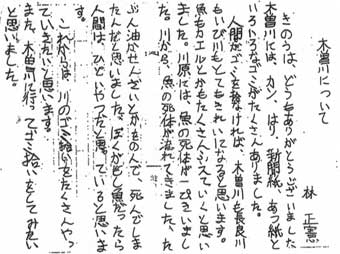 木曽川について
林 正憲
きのうは、どうもありがとうございました。
木曽川には、カン、はり、新聞紙、あつ紙と
いろいろなゴミがたくさんありました。
人間がゴミを捨なければ、木曽川も長良川
もいび川もとてもきれいになると思います。
魚もカエルとかもたくさんふえていくと思い
ました。川原には、魚の死体が
ました。川から、魚の死体が流れてきました。た
ぶん油かせんざいとかをのんで、死んでしま
たんだと思いました。ぼくがもし魚だったら
人間は、ひどいやつだと思っていると思いま
す。
これからは、川のゴミ拾いをたくさんやっ
ていきたいと思います。
また、木曽川に行ってゴミ拾いをしてみたい
と思いました。